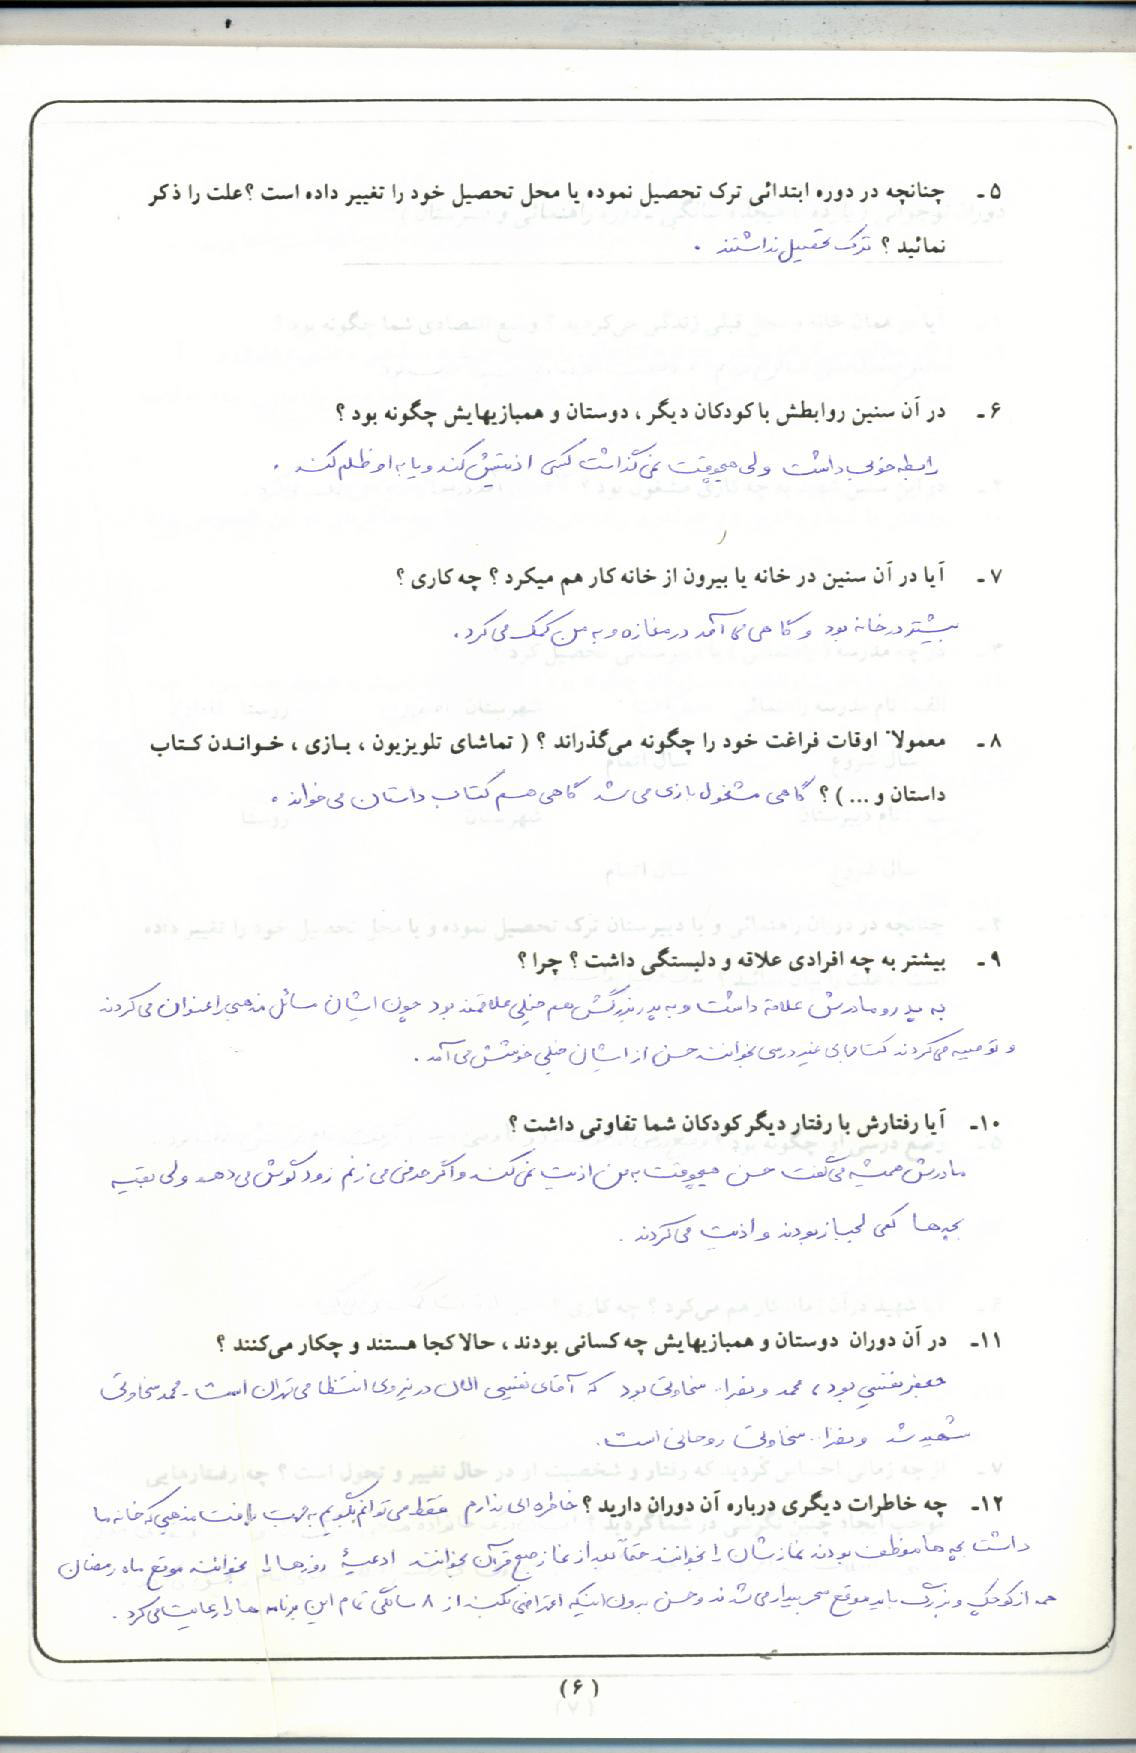 ۵ـ چنانچه در دوره ابتدائی ترک تحصیل نموده یا محل تحصیل خود را تغییر داده است ؟ علت را ذکر
نمائید ؟ ترک تحصیل نداشتند .
۶ـ در آن سنین روابطش با کودکان دیگر ، دوستان و همبازیهایش چگونه بود ؟
رابطه خوبی داشت ولی هیچوقت نمی گذاشت کسی اذیتش کند و یا به او ظلم کند .
۷ـ آیا در آن سنین در خانه یا بیرون از خانه کار هم میکرد ؟ چه کاری ؟
بیشتر در خانه بود و گاهی می آمد در مغازه و به من کمک می کرد .
۸ـ معمولاً اوقات فراغت خود را چگونه می‌گذراند ؟ ( تماشای تلویزیون ، بازی ، خواندن کتاب
داستان و ... ) ؟ گاهی مشغول بازی می شد گاهی هم کتاب داستان می خواند .
۹ـ بیشتر به چه افرادی علاقه و دلبستگی داشت ؟ چرا ؟
به پدر و مادرش علاقه داشت و به پدربزرگش هم خیلی علاقمند بود چون ایشان مسائل مذهبی را عنوان می کردند
و توصیه می کردند کتابهای غیر درسی بخوانند حسن از ایشان خیلی خوشش می آمد .
۱۰ـ آیا رفتارش با رفتار دیگر کودکان شما تفاوتی داشت ؟
مادرش همیشه می گفت حسن هیچوقت به من اذیت نمی کند و اگر حرفی می زنم زود گوش می دهد ولی بقیه
بچه ها کمی لجباز بودند و اذیت می کردند .
۱۱ـ در آن دوران دوستان و همبازیهایش چه کسانی بودند ، حالا کجا هستند و چکار می‌کنند ؟
جعفر نفیسی بود ، محمد و نصرا.. سخاوتی بود که آقای نفیسی الان در نیروی انتظامی تهران است - محمد سخاوتی
شهید شد و نصرا.. سخاوتی روحانی است .
۱۲ـ چه خاطرات دیگری درباره آن دوران دارید ؟ خاطره ای ندارم فقط می توانم بگویم به جهت بافت مذهبی که خانه ما
داشت بچه ها موظف بودند نمازشان را بخوانند حتماً بعد از نماز صبح قرآن بخوانند ادعیهٔ روزها را بخوانند موقع ماه رمضان
همه از کوچک و بزرگ باید موقع سحر بیدار می شدند و حسن بدون اینکه اعتراضی بکند از ۸ سالگی تمام این برنامه ها را رعایت می کرد .
(۶)